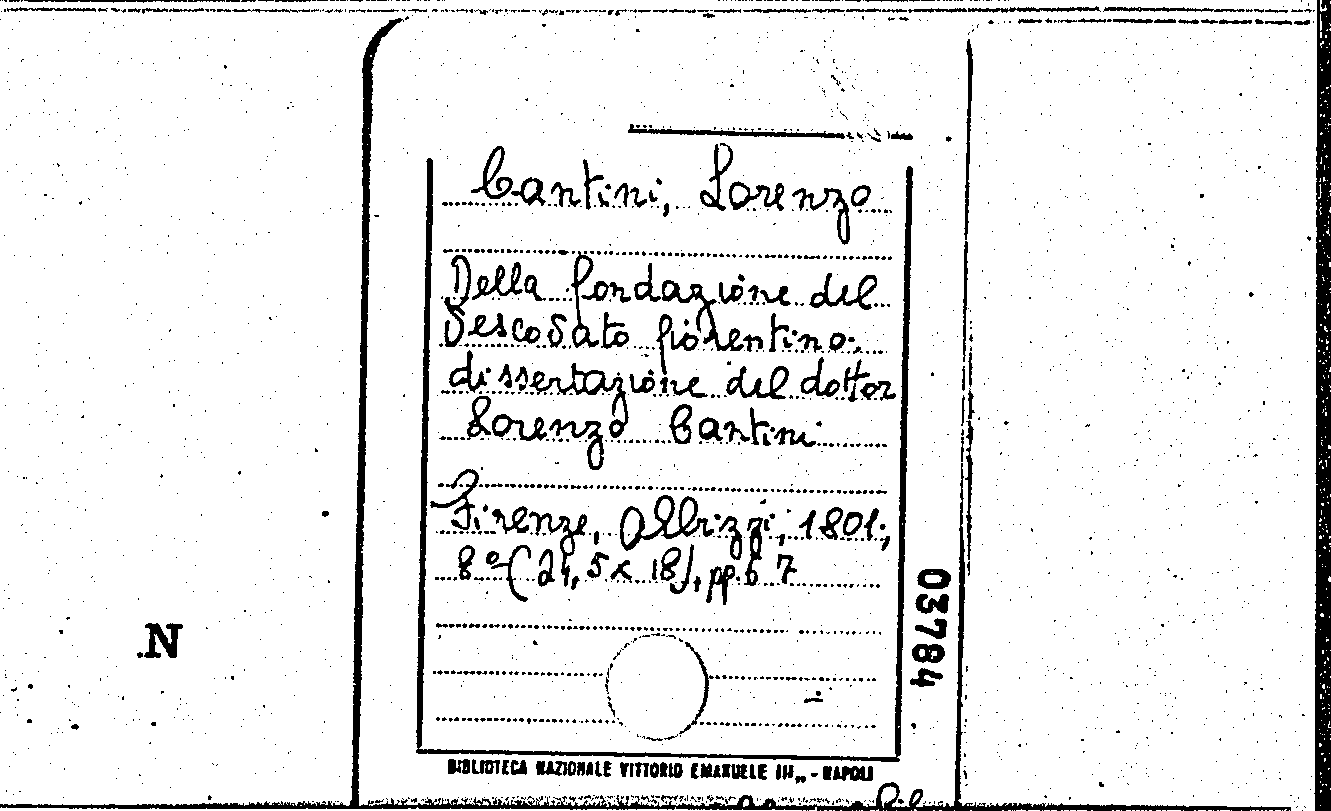 Cantini, Lorenzo
Della fondazione del
Vescovato fiorentino.
dissertazione del dottor
Lorenzo Cantini
Firenze, Albrizzi, 1801;
8º (24,5 x 18), pp. 67
03784
.N
BIBLIOTECA NAZIONALE VITTORIO EMANUELE III„ - NAPOLI